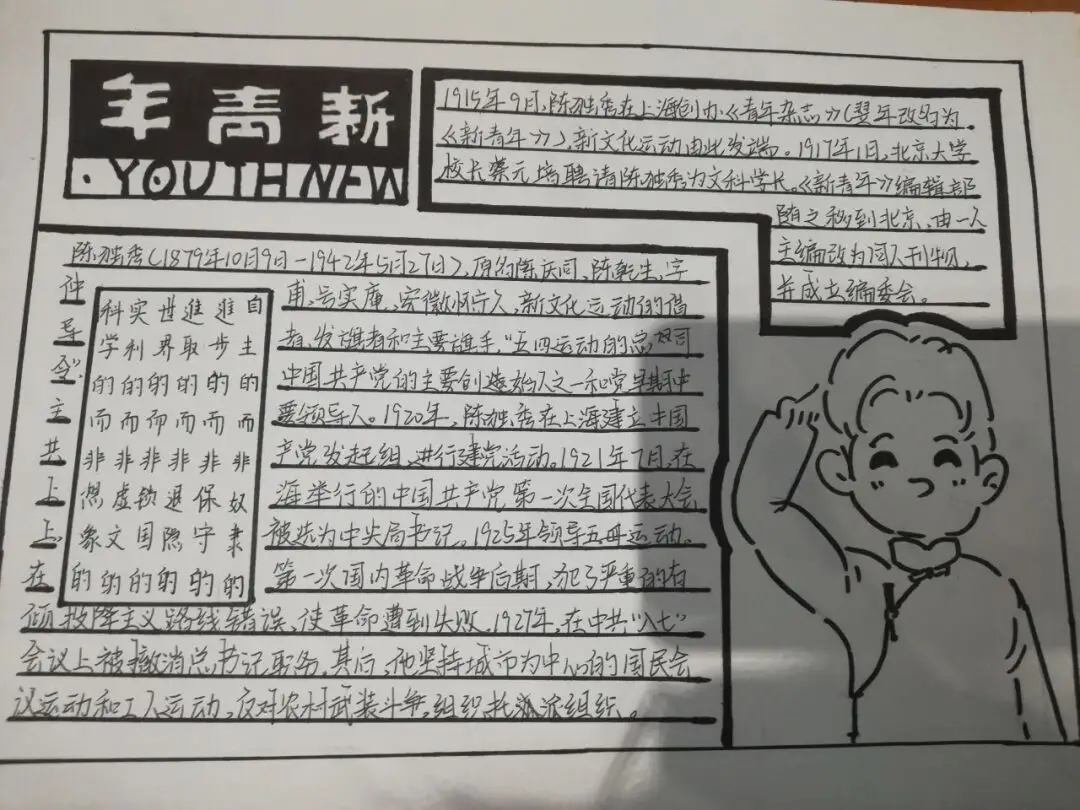 新青年
· YOUTH NEW
1915年9月,陈独秀在上海创办《青年杂志》(翌年改名为
《新青年》),新文化运动由此发端。1917年1月,北京大学
校长蔡元培聘请陈独秀为文科学长。《新青年》编辑部
随之移到北京,由一人
主编改为同人刊物,
并成立编委会。
陈独秀(1879年10月9日-1942年5月27日),原名陈庆同,陈乾生,字
仲甫,号实庵,安徽怀宁人,新文化运动的倡
导者,发旗者和主要旗手,"五四运动的总司
令".中国共产党的主要创造始人之一和党早期中
主要领导人。1920年,陈独秀在上海建立中国
共产党发起组,进行建党活动。1921年7月,在
上海举行的中国共产党第一次全国代表大会
上.被选为中央局书记。1925年领导五卅运动。
在第一次国内革命战争后期,犯了严重的右
倾投降主义路线错误,使革命遭到失败。1927年,在中共"八七"
会议上被撤消总书记职务。其后,他坚持城市为中心的国民会
议运动和工人运动,反对农村武装斗争,组织托派组织。
自主的而非奴隶的
進步的而非保守的
進取的而非退隐的
世界的而非锁国的
实利的而非虚文的
科学的而非想象的